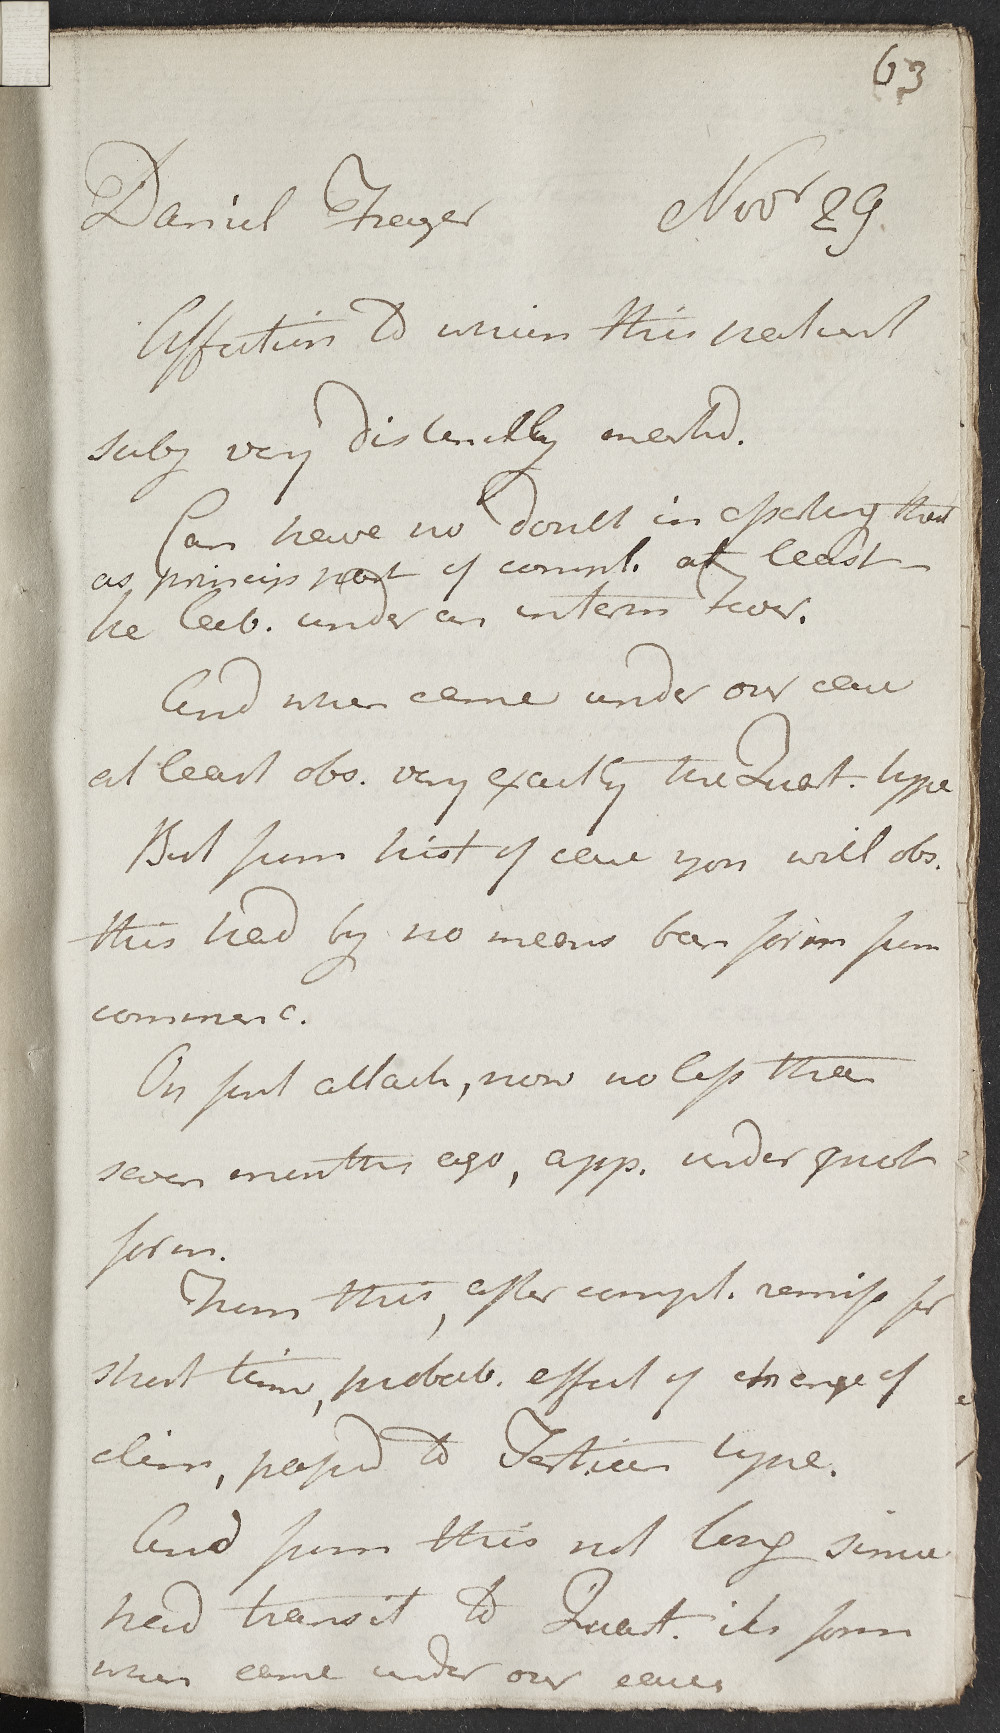 63
Daniel Frazer Novr 29
Affection to which this patient
subj very distinctly markd.
Can have no doubt in asserting that
as princip part of compl. at least
he lab. under an interm Fever.
And when came under our care
at least obs. very exactly the Quart. type
But from hist of case you will obs.
this had by no means been form from
commenc.
On first attack, now no less than
seven months ago, app. under quot
form.
From this, after compl. remiss for
short time, probab. effect of change of
clim, passd to Tertian type.
And from this not long since
had transit to Quart. its form
when came under our care.